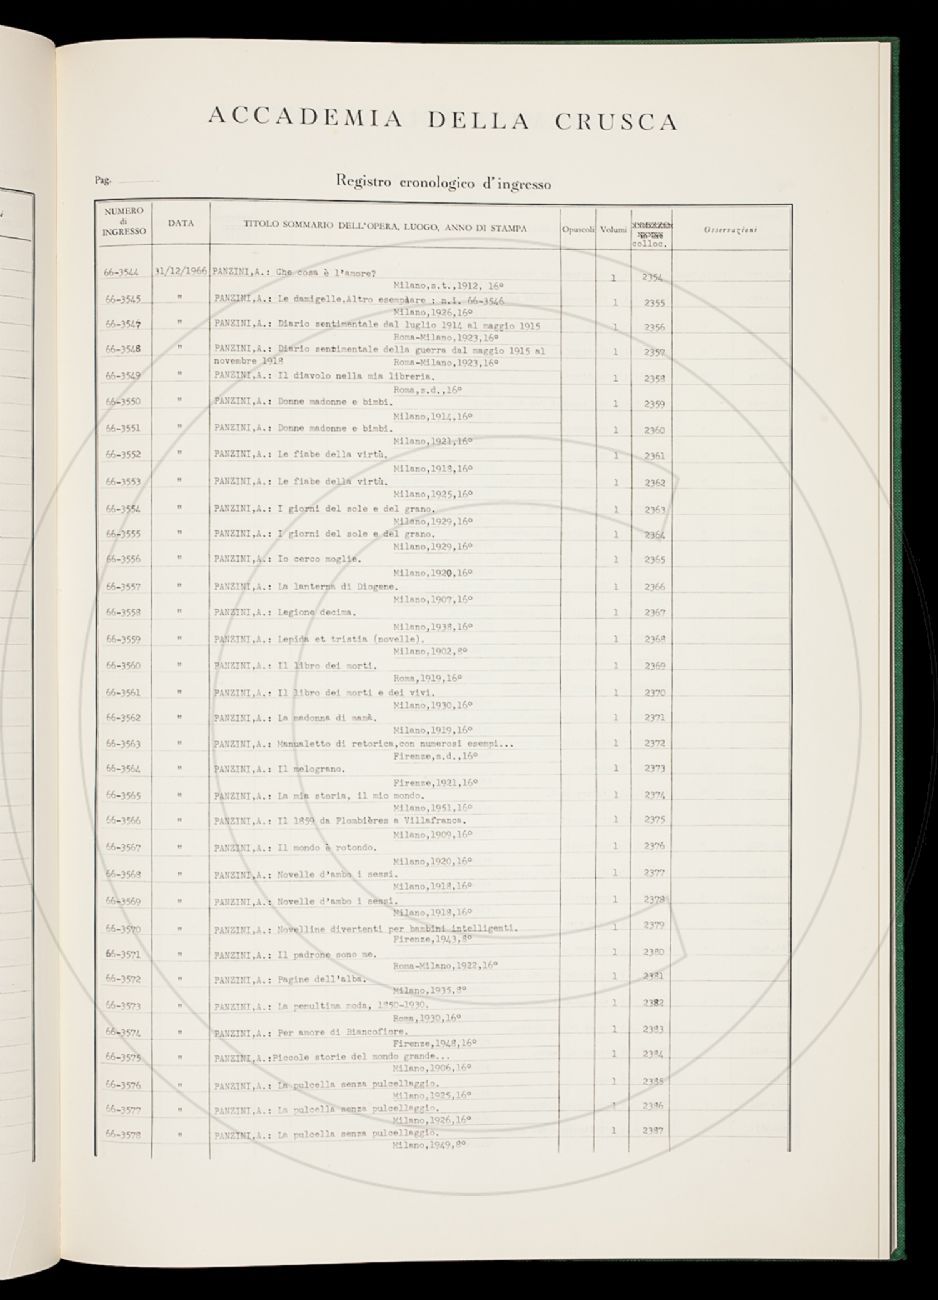 ACCADEMIA DELLA CRUSCA
Pag.
Registro cronologico d'ingresso
NUMERO di INGRESSO DATA TITOLO SOMMARIO DELL'OPERA, LUOGO, ANNO DI STAMPA Opuscoli Volumi colloc. Osservazioni
66-3544 31/12/1966 PANZINI,A.: Che cosa è l'amore?
Milano,s.t.,1912, 16° 1 2354
66-3545 " PANZINI,A.: Le damigelle.Altro esemplare : n.i. 66-3546
Milano,1926,16° 1 2355
66-3547 " PANZINI,A.: Diario sentimentale dal luglio 1914 al maggio 1915
Roma-Milano,1923,16° 1 2356
66-3548 " PANZINI,A.: Diario sentimentale della guerra dal maggio 1915 al
novembre 1918 Roma-Milano,1923,16° 1 2357
66-3549 " PANZINI,A.: Il diavolo nella mia libreria.
Roma,s.d.,16° 1 2358
66-3550 " PANZINI,A.: Donne madonne e bimbi.
Milano,1914,16° 1 2359
66-3551 " PANZINI,A.: Donne madonne e bimbi.
Milano,1921,16° 1 2360
66-3552 " PANZINI,A.: Le fiabe della virtù.
Milano,1918,16° 1 2361
66-3553 " PANZINI,A.: Le fiabe della virtù.
Milano,1925,16° 1 2362
66-3554 " PANZINI,A.: I giorni del sole e del grano.
Milano,1929,16° 1 2363
66-3555 " PANZINI,A.: I giorni del sole e del grano.
Milano,1929,16° 1 2364
66-3556 " PANZINI,A.: Io cerco moglie.
Milano,1920,16° 1 2365
66-3557 " PANZINI,A.: La lanterna di Diogene.
Milano,1907,16° 1 2366
66-3558 " PANZINI,A.: Legione decima.
Milano,1938,16° 1 2367
66-3559 " PANZINI,A.: Lepida et tristia (novelle).
Milano,1902,8° 1 2368
66-3560 " PANZINI,A.: Il libro dei morti.
Roma,1919,16° 1 2369
66-3561 " PANZINI,A.: Il libro dei morti e dei vivi.
Milano,1930,16° 1 2370
66-3562 " PANZINI,A.: La madonna di mamà.
Milano,1919,16° 1 2371
66-3563 " PANZINI,A.: Manualetto di retorica,con numerosi esempi...
Firenze,s.d.,16° 1 2372
66-3564 " PANZINI,A.: Il melograno.
Firenze,1921,16° 1 2373
66-3565 " PANZINI,A.: La mia storia, il mio mondo.
Milano,1951,16° 1 2374
66-3566 " PANZINI,A.: Il 1859 da Plombières a Villafranca.
Milano,1909,16° 1 2375
66-3567 " PANZINI,A.: Il mondo è rotondo.
Milano,1920,16° 1 2376
66-3568 " PANZINI,A.: Novelle d'ambo i sessi.
Milano,1918,16° 1 2377
66-3569 " PANZINI,A.: Novelle d'ambo i sessi.
Milano,1918,16° 1 2378
66-3570 " PANZINI,A.: Novelline divertenti per bambini intelligenti.
Firenze,1943,8° 1 2379
66-3571 " PANZINI,A.: Il padrone sono me.
Roma-Milano,1922,16° 1 2380
66-3572 " PANZINI,A.: Pagine dell'alba.
Milano,1935,8° 1 2381
66-3573 " PANZINI,A.: La penultima moda, 1850-1930.
Roma,1930,16° 1 2382
66-3574 " PANZINI,A.: Per amore di Biancofiore.
Firenze,1948,16° 1 2383
66-3575 " PANZINI,A.:Piccole storie del mondo grande...
Milano,1906,16° 1 2384
66-3576 " PANZINI,A.: La pulcella senza pulcellaggio.
Milano,1925,16° 1 2385
66-3577 " PANZINI,A.: La pulcella senza pulcellaggio.
Milano,1926,16° 1 2386
66-3578 " PANZINI,A.: La pulcella senza pulcellaggio.
Milano,1949,8° 1 2387